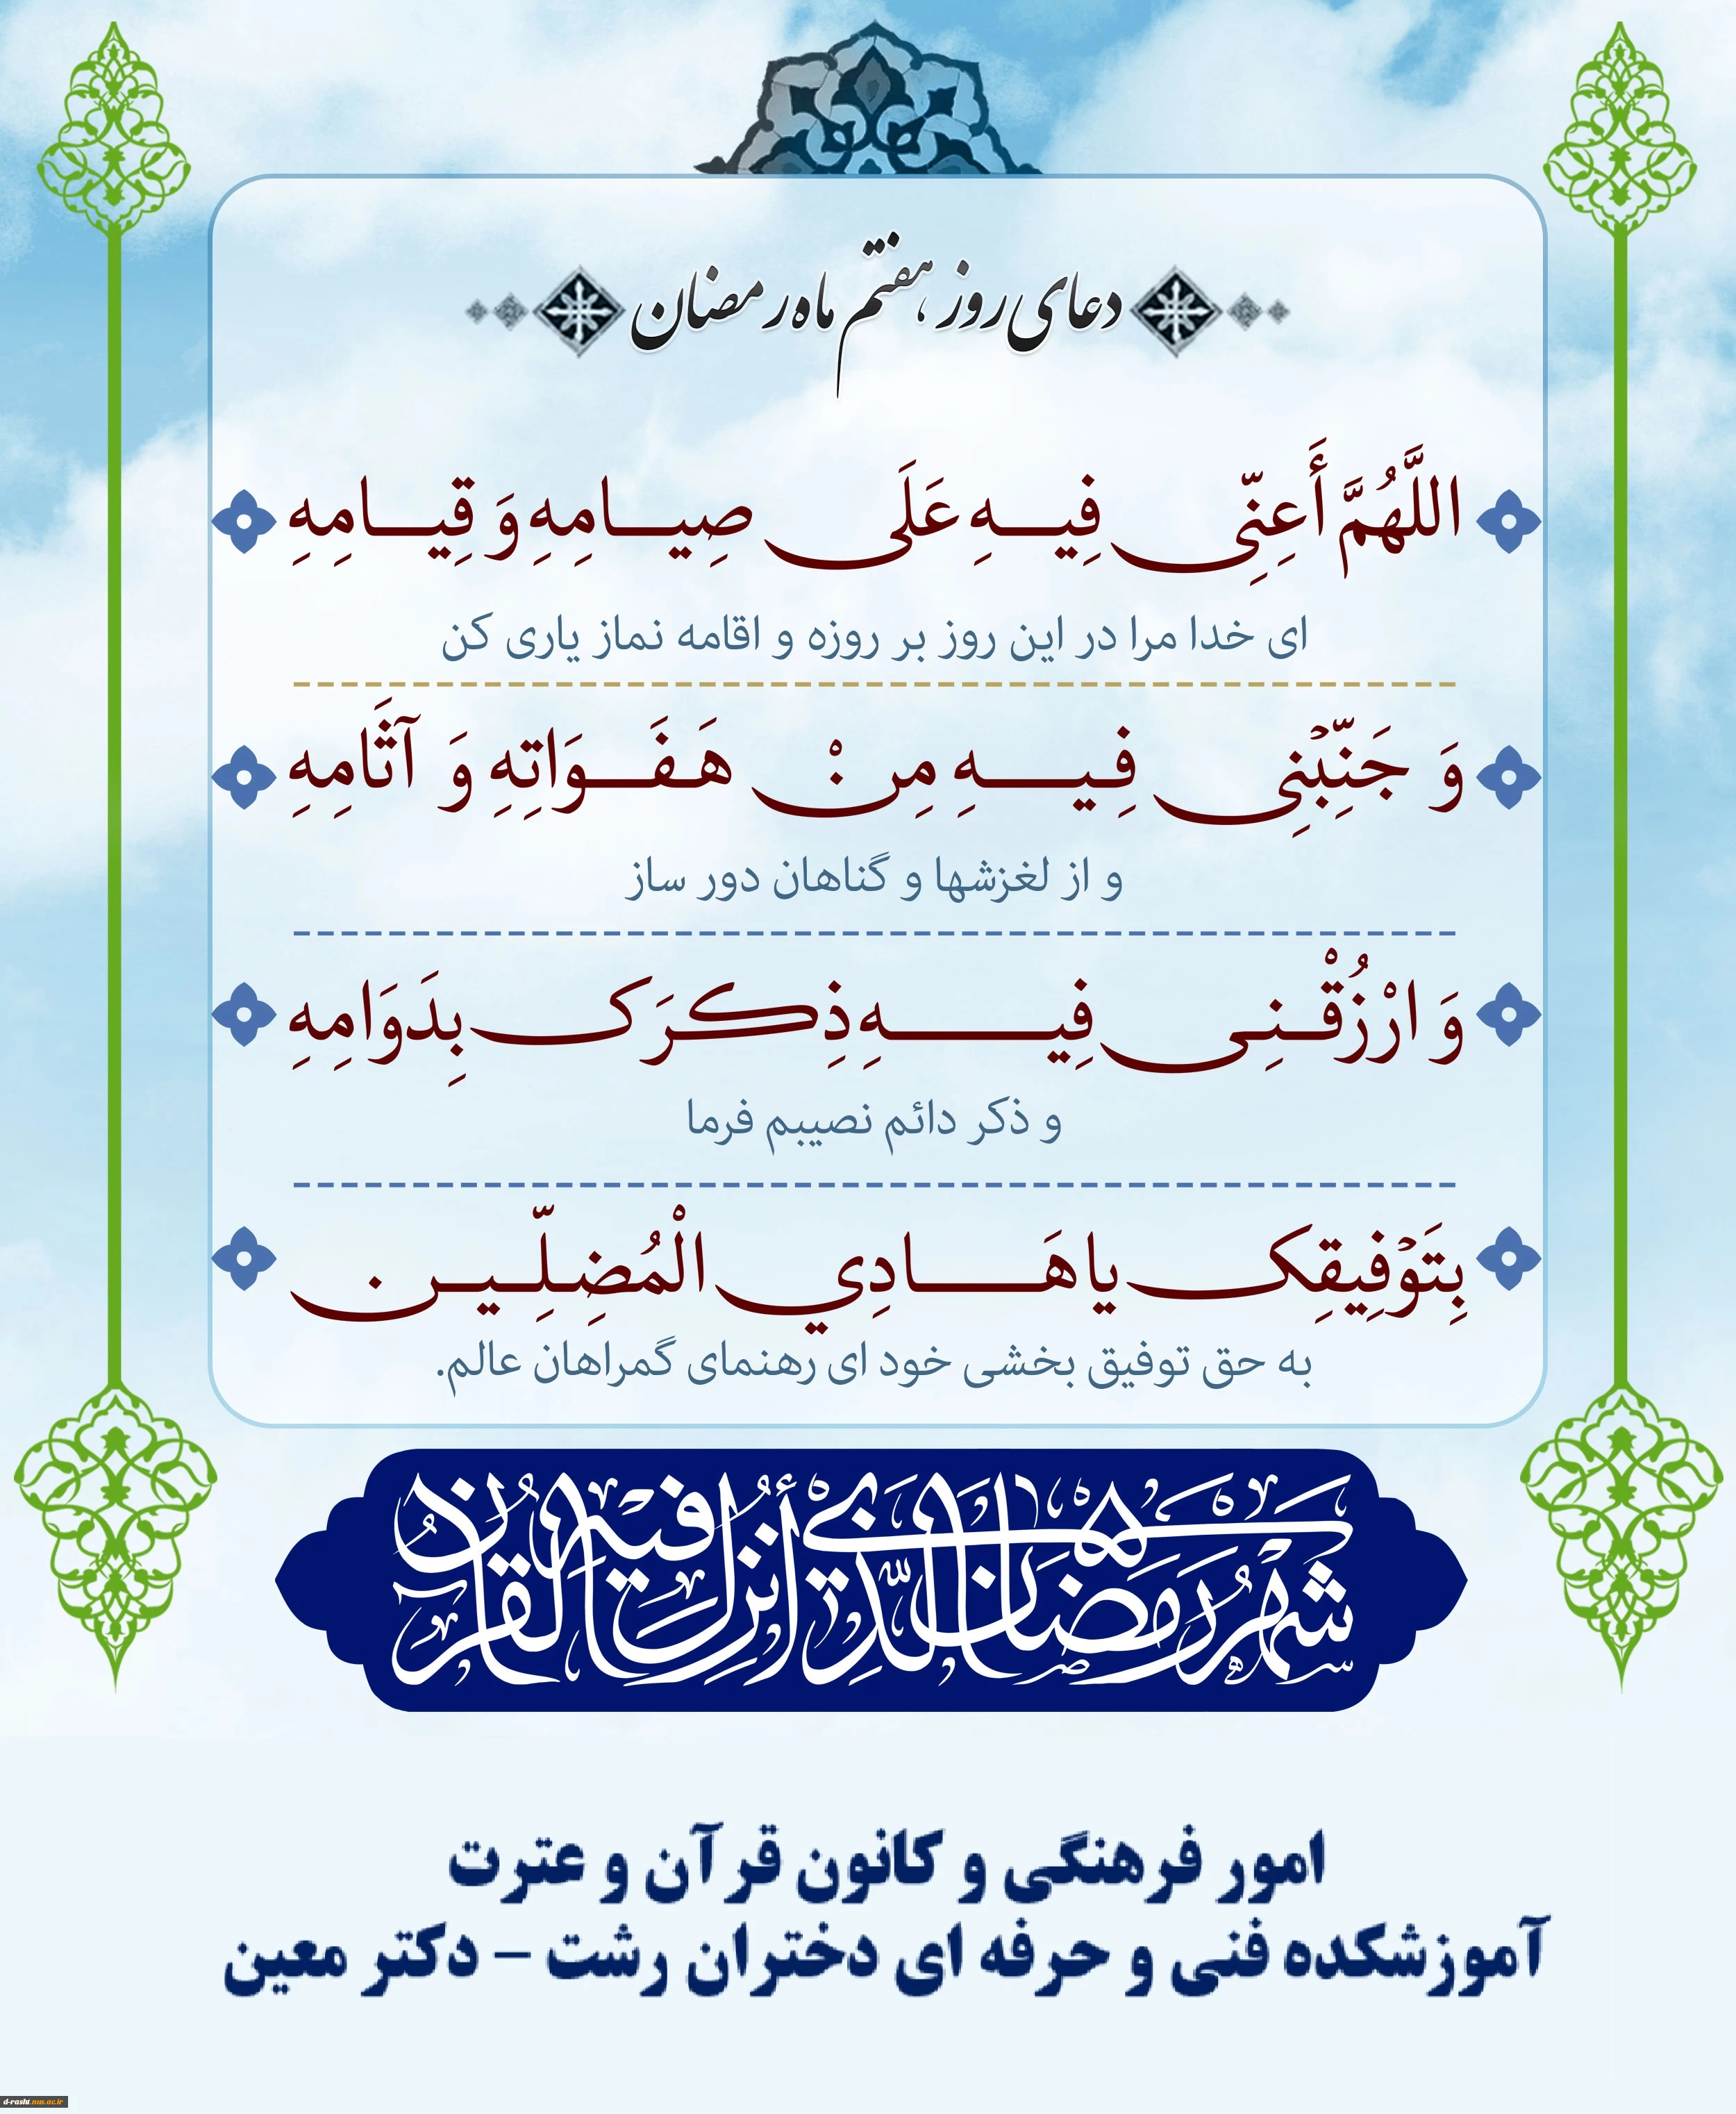 دعای روز هفتم ماه رمضان
اللَّهُمَّ أَعِنِّی فِیهِ عَلَی صِیامِهِ وَ قِیامِهِ
ای خدا مرا در این روز بر روزه و اقامه نماز یاری کن
وَ جَنِّبْنِی فِیهِ مِنْ هَفَوَاتِهِ وَ آثَامِهِ
و از لغزشها و گناهان دور ساز
وَ ارْزُقْنِی فِیهِ ذِکرَک بِدَوَامِهِ
و ذکر دائم نصیبم فرما
بِتَوْفِیقِک یا هَادِي الْمُضِلِّین
به حق توفیق بخشی خود ای رهنمای گمراهان عالم.
شَهْرُ رَمَضَانَ الَّذِي أُنْزِلَ فِيهِ الْقُرْآنُ
امور فرهنگی و کانون قرآن و عترت
آموزشکده فنی و حرفه ای دختران رشت – دکتر معین
d-rasht.nus.ac.ir